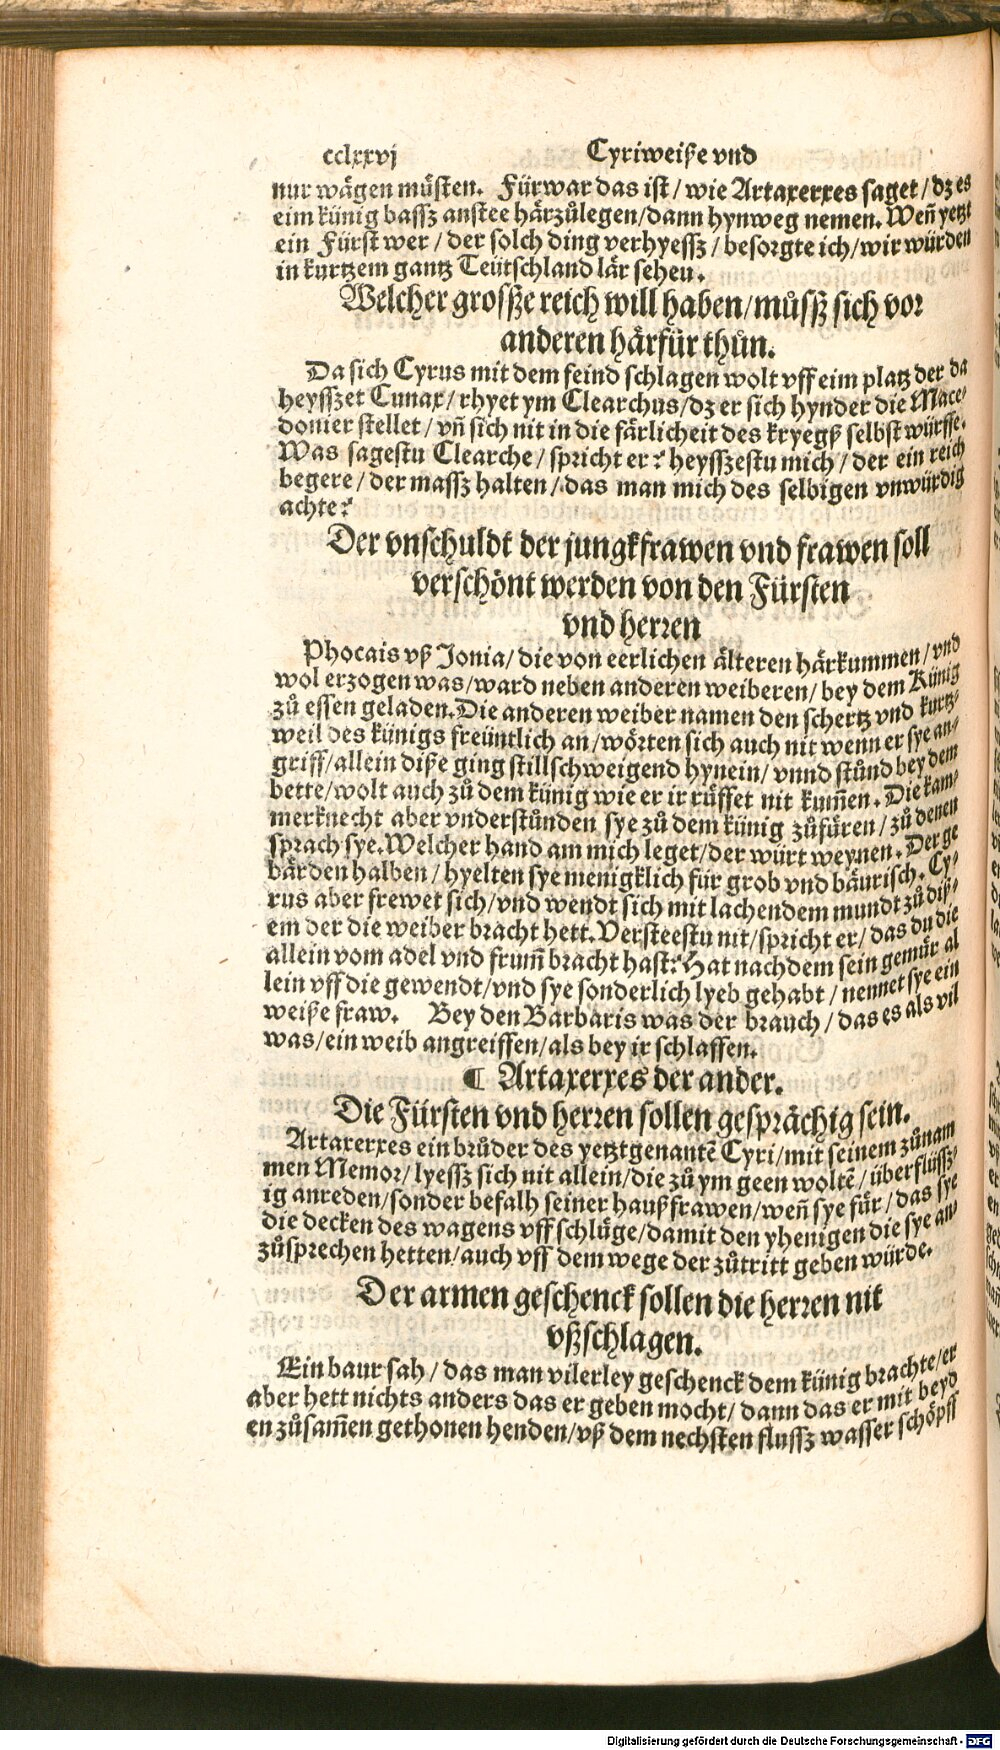 cclxxvj Cyriweiße vnd
nur wägen müsten. Fürwar das ist / wie Artaxerxes saget / dz es
eim künig bassz anstee härzůlegen / dann hynweg nemen. Weñ yetzt
ein Fürst wer / der solch ding verhyessz / besorgte ich / wir würden
in kurtzem gantz Teütschland lär sehen.
Welcher grosße reich will haben / můsß sich vor
anderen härfür thůn.
Da sich Cyrus mit dem feind schlagen wolt vff eim platz der da
heysszet Cunax / rhyet ym Clearchus / dz er sich hynder die Mace-
donier stellet / vñ sich nit in die färlicheit des kryegß selbst würffe.
Was sagestu Clearche / spricht er? heysszestu mich / der ein reich
begere / der massz halten / das man mich des selbigen vnwürdig
achte?
Der vnschuldt der jungkfrawen vnd frawen soll
verschönt werden von den Fürsten
vnd herren
Phocais vß Jonia / die von eerlichen älteren härkummen / vnd
wol erzogen was / ward neben anderen weiberen / bey dem Künig
zů essen geladen. Die anderen weiber namen den schertz vnd kurtz-
weil des künigs freüntlich an / wörten sich auch nit wenn er sye an-
griff / allein diße ging stillschweigend hynein / vnnd stůnd bey dem
bette / wolt auch zů dem künig wie er ir rüffet nit kum̃en. Die kam-
merknecht aber vnderstůnden sye zů dem künig zůfüren / zů denen
sprach sye. Welcher hand am mich leget / der würt weynen. Der ge
bärden halben / hyelten sye menigklich für grob vnd bäurisch. Cy-
rus aber frewet sich / vnd wendt sich mit lachendem mundt zů diß-
em der die weiber bracht hett. Versteestu nit / spricht er / das du die
allein vom adel vnd frum̃ bracht hast? Hat nachdem sein gemüt al
lein vff die gewendt / vnd sye sonderlich lyeb gehabt / nennet sye ein
weiße fraw. Bey den Barbaris was der brauch / das es als vil
was / ein weib angreiffen / als bey ir schlaffen.
¶ Artaxerxes der ander.
Die Fürsten vnd herren sollen gesprächig sein.
Artaxerxes ein brůder des yetztgenantẽ Cyri / mit seinem zůnam
men Memor / lyessz sich nit allein / die zů ym geen woltẽ / überflüssz-
ig anreden / sonder befalh seiner haußfrawen / weñ sye für / das sye
die decken des wagens vff schlüge / damit den yhenigen die sye an-
zůsprechen hetten / auch vff dem wege der zůtritt geben würde.
Der armen geschenck sollen die herren nit
vßschlagen.
Ein baur sah / das man vilerley geschenck dem künig brachte / er
aber hett nichts anders das er geben mocht / dann das er mit beyd
en zůsam̃en gethonen henden / vß dem nechsten flussz wasser schöpff
Digitalisierung gefördert durch die Deutsche Forschungsgemeinschaft - DFG